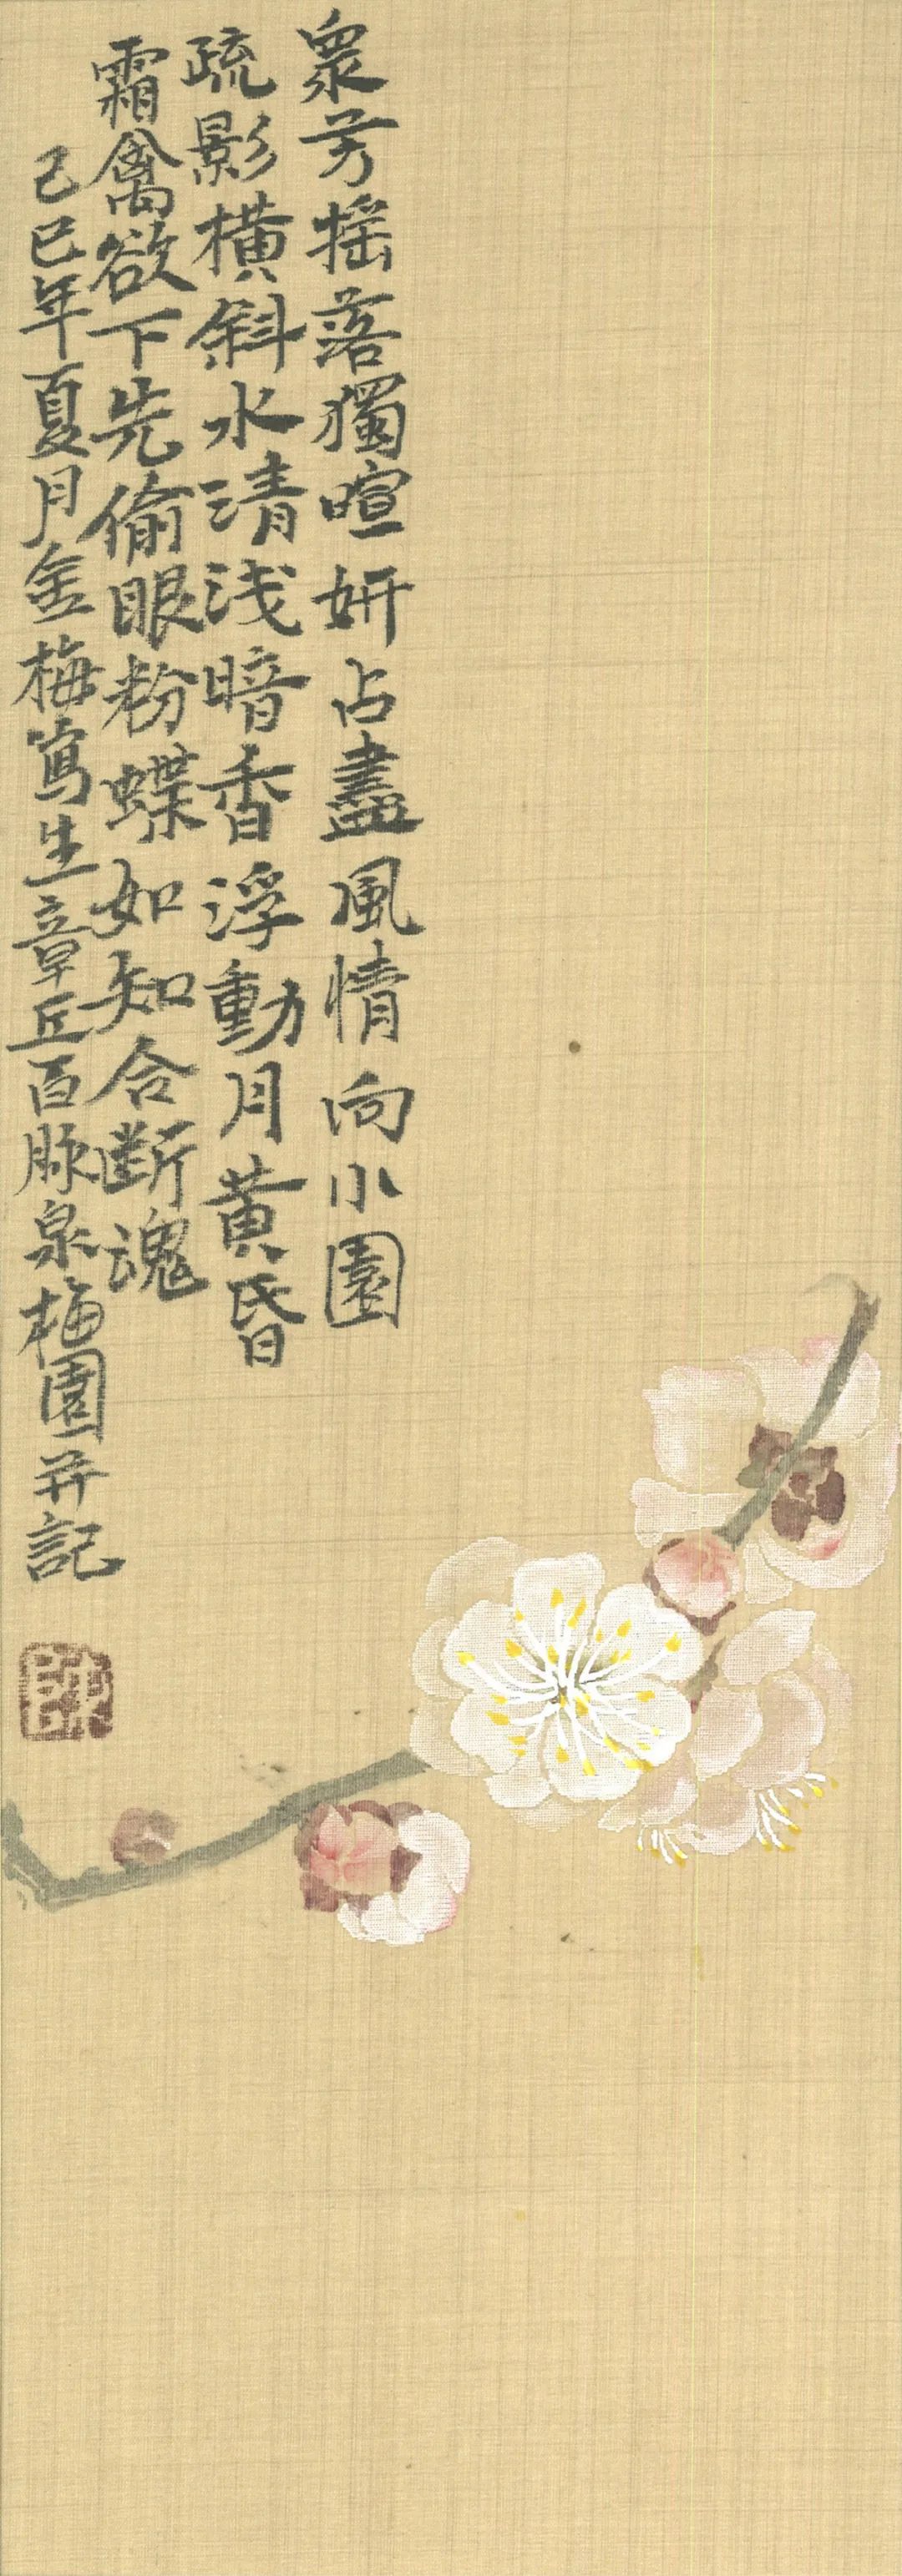 眾芳搖落獨暄妍占盡風情向小園
疏影橫斜水清浅暗香浮動月黃昏
霜禽欲下先偷眼粉蝶如知合断魂
己巳年夏月金梅寫生章丘百脉泉梅園并記